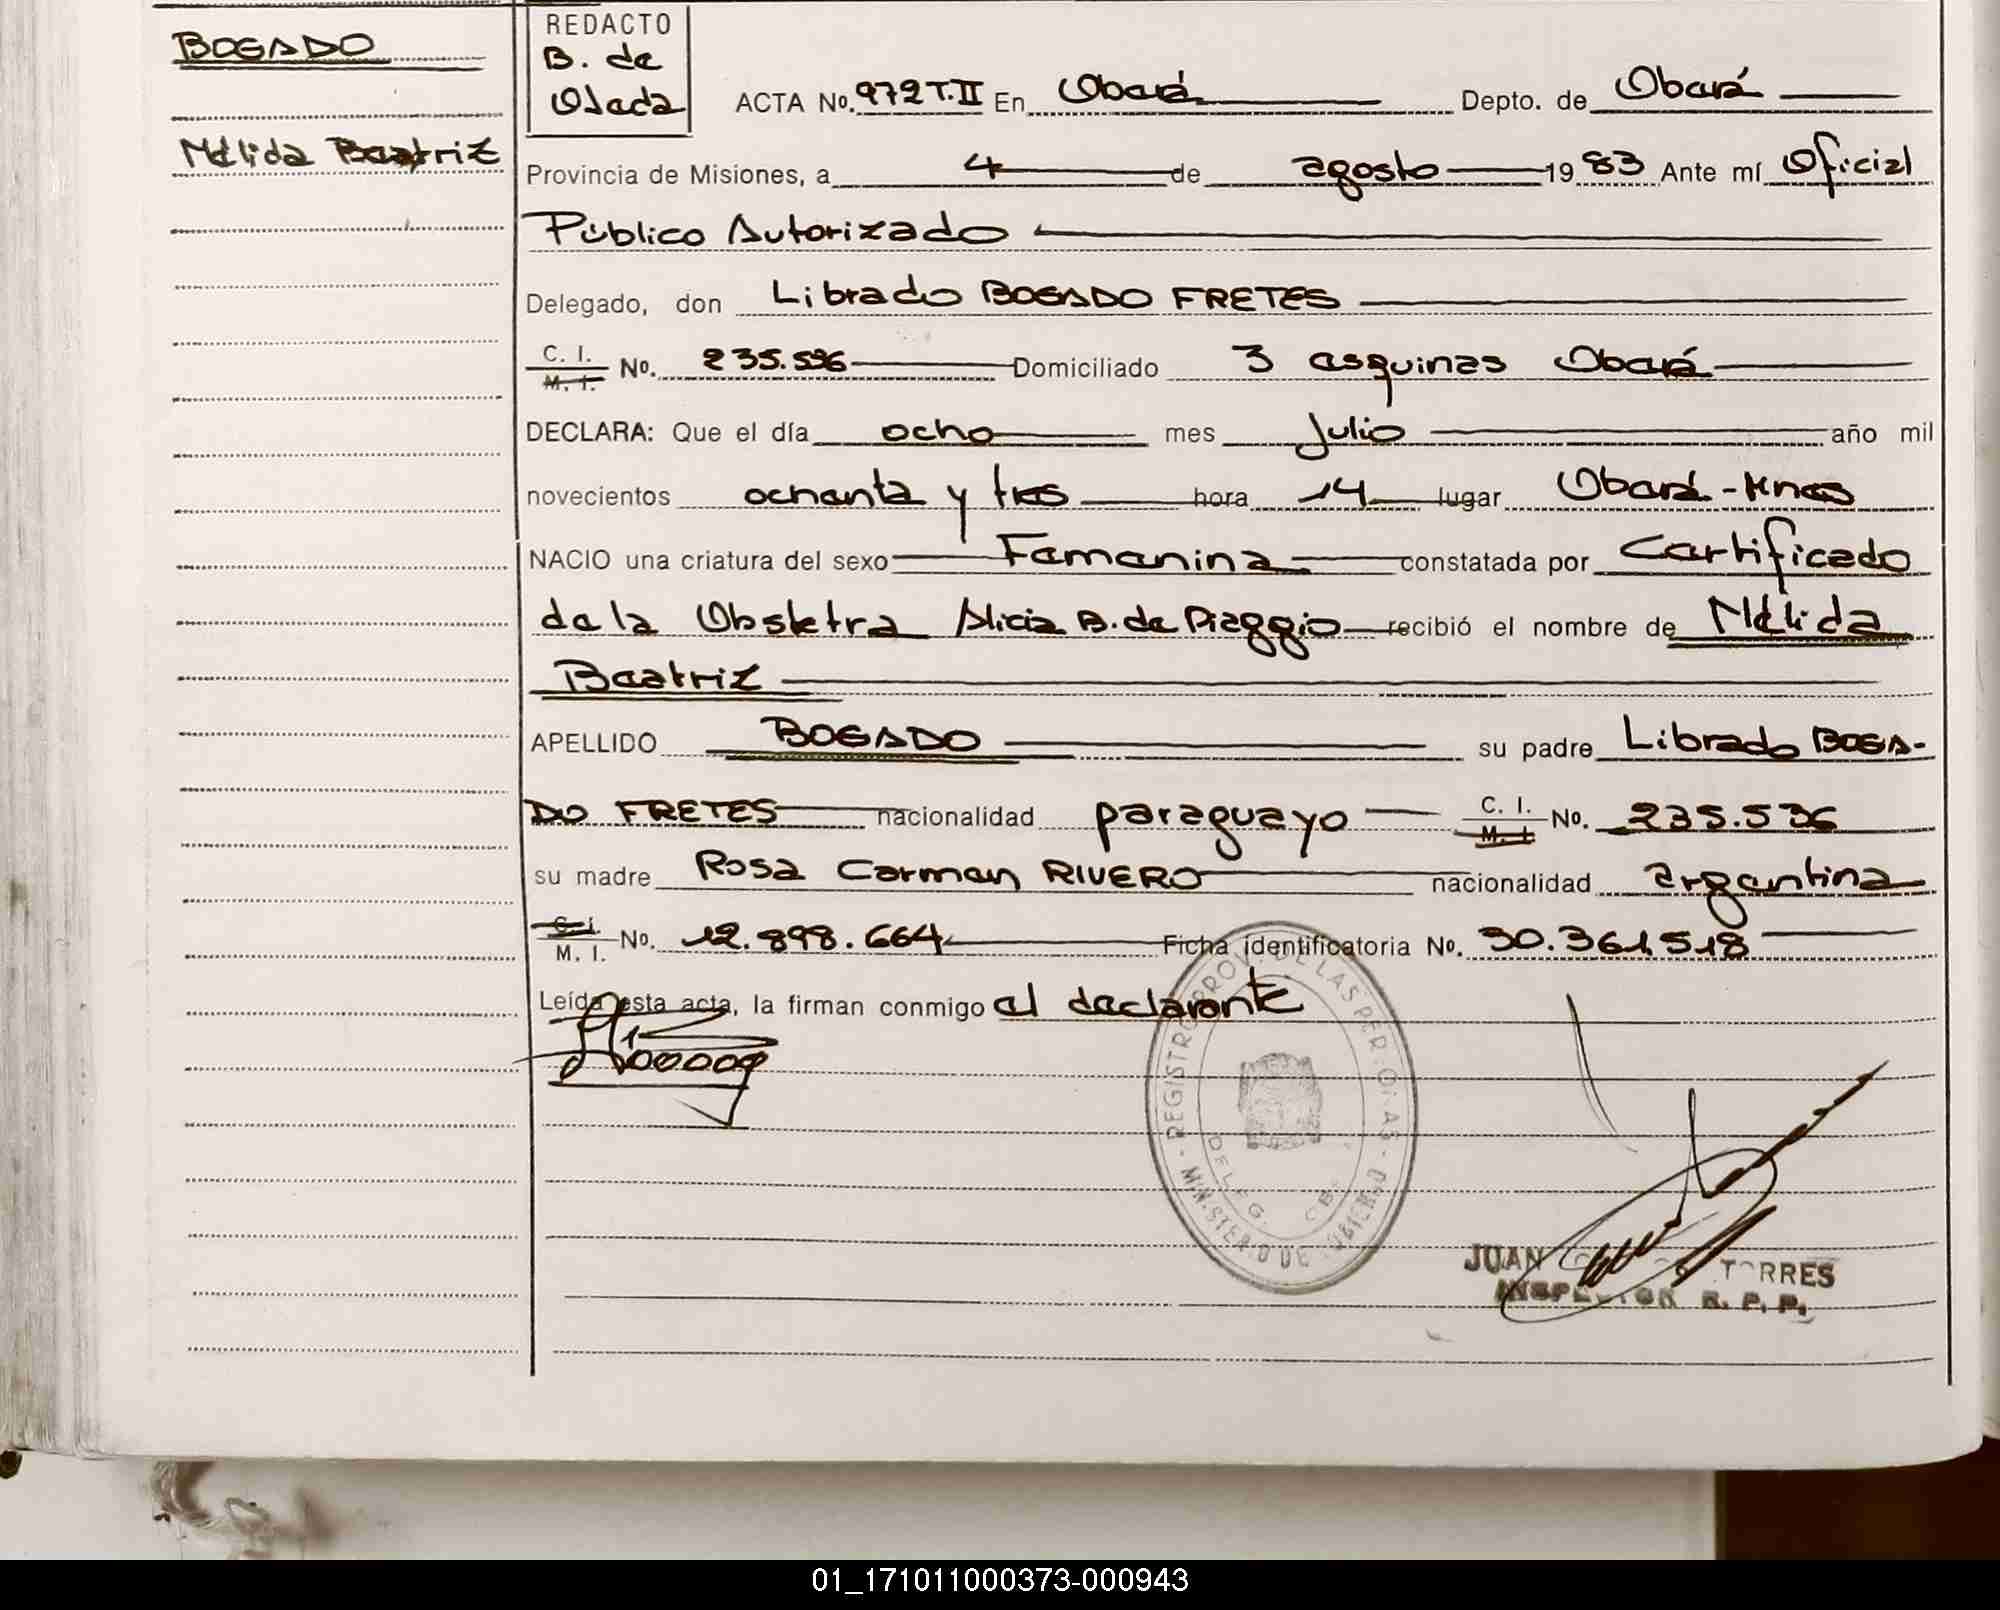 BOGADO
Nélida Beatriz
REDACTO
B. de
Ojeda
ACTA No. 972 T.II En Oberá Depto. de Oberá
Provincia de Misiones, a 4 de agosto 1983 Ante mí Oficial
Público Autorizado
Delegado, don Librado BOGADO FRETES
C. I. M. I. No. 235.536 Domiciliado 3 esquinas Oberá
DECLARA: Que el día ocho mes Julio año mil
novecientos ochenta y tres hora 14 lugar Oberá - Mnes
NACIO una criatura del sexo Femenina constatada por Certificado
de la Obstetra Alicia B. de Piaggio recibió el nombre de Nélida
Beatriz
APELLIDO BOGADO su padre Librado BOGA-
DO FRETES nacionalidad paraguayo C. I. M. I. No. 235.536
su madre Rosa Carmen RIVERO nacionalidad argentina
C. I. M. I. No. 12.898.664 Ficha identificatoria No. 30.361.518
Leída esta acta, la firman conmigo el declarante
REGISTRO PROV. DE LAS PERSONAS - MINISTERIO DE GOBIERNO
DELEG.
JUAN TORRES
INSPECTOR R. P. P.
01_171011000373-000943